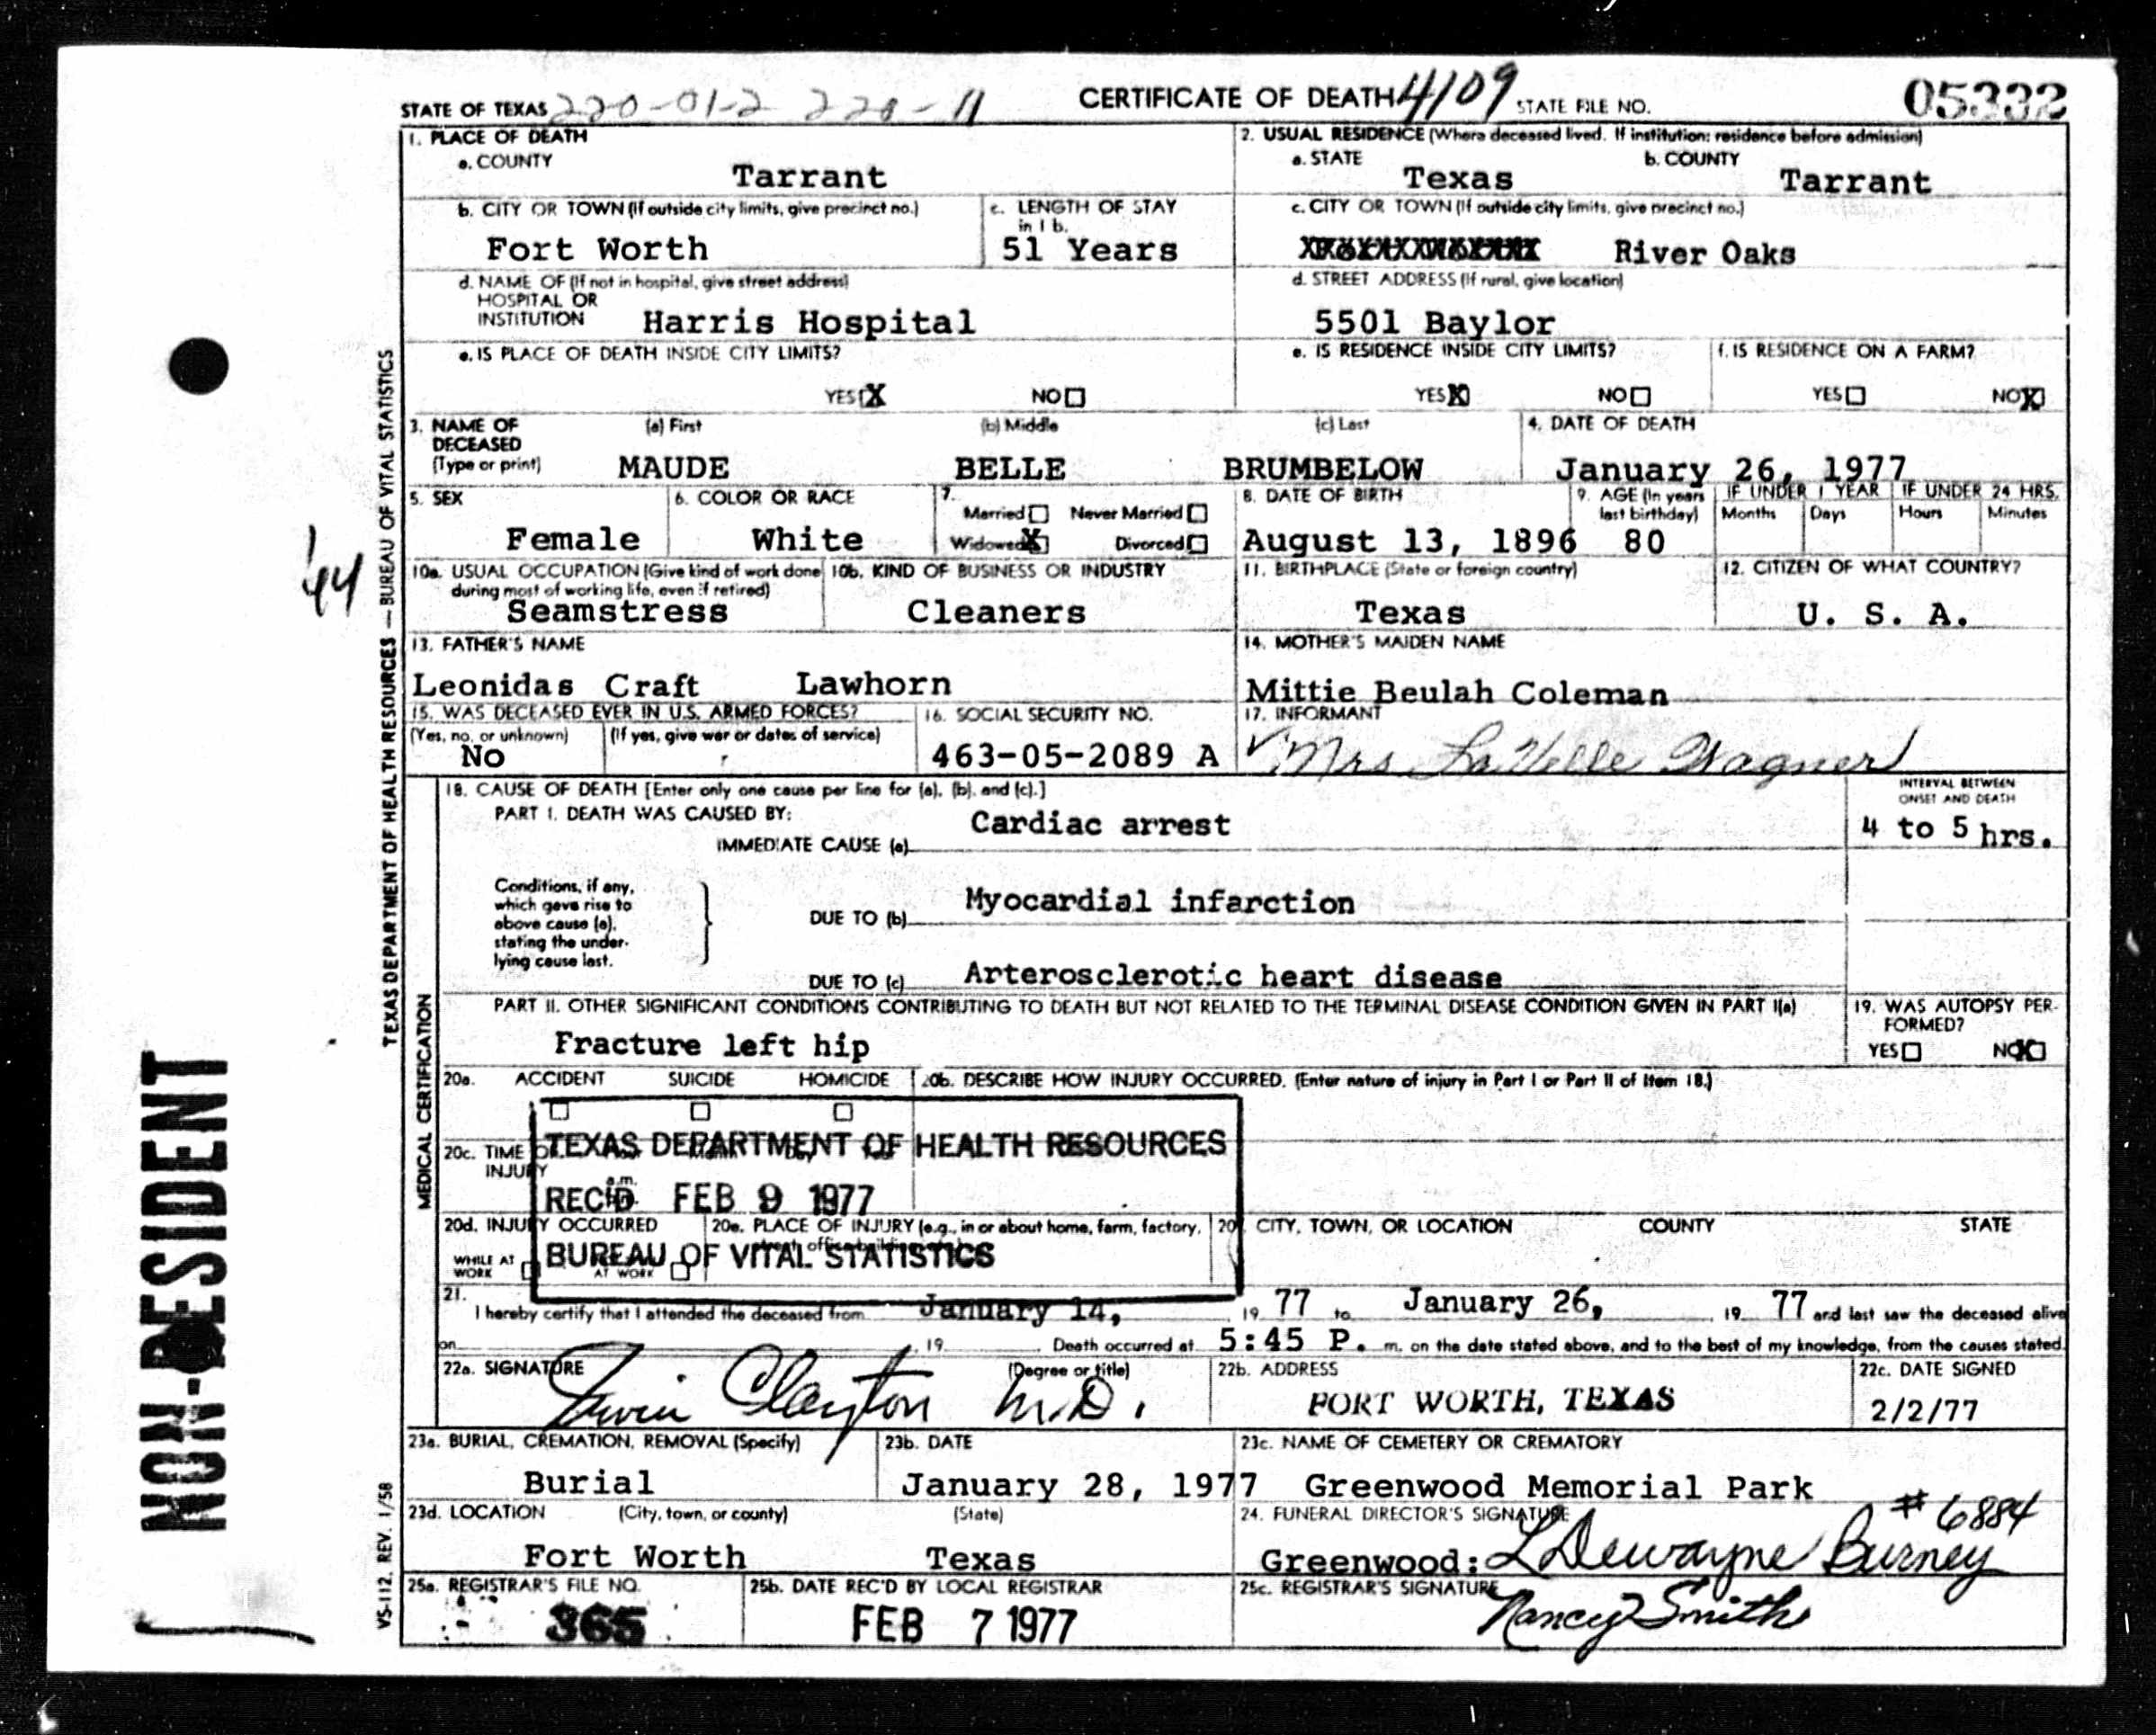 STATE OF TEXAS 220-01-2 220-11 CERTIFICATE OF DEATH 4109 STATE FILE NO. 05332
1. PLACE OF DEATH
a. COUNTY
Tarrant
2. USUAL RESIDENCE (Where deceased lived. If institution: residence before admission)
a. STATE b. COUNTY
Texas Tarrant
b. CITY OR TOWN (If outside city limits, give precinct no.) c. LENGTH OF STAY in 1 b.
Fort Worth 51 Years
c. CITY OR TOWN (If outside city limits, give precinct no.)
River Oaks
d. NAME OF (If not in hospital, give street address)
HOSPITAL OR
INSTITUTION Harris Hospital
d. STREET ADDRESS (If rural, give location)
5501 Baylor
e. IS PLACE OF DEATH INSIDE CITY LIMITS?
YES X NO
e. IS RESIDENCE INSIDE CITY LIMITS? f. IS RESIDENCE ON A FARM?
YES X NO YES NO X
3. NAME OF DECEASED (Type or print) (a) First (b) Middle (c) Last 4. DATE OF DEATH
MAUDE BELLE BRUMBELOW January 26, 1977
5. SEX 6. COLOR OR RACE 7. 8. DATE OF BIRTH 9. AGE (In years last birthday) IF UNDER 1 YEAR IF UNDER 24 HRS.
Married Never Married Months Days Hours Minutes
Female White Widowed X Divorced August 13, 1896 80
10a. USUAL OCCUPATION (Give kind of work done during most of working life, even if retired) 10b. KIND OF BUSINESS OR INDUSTRY 11. BIRTHPLACE (State or foreign country) 12. CITIZEN OF WHAT COUNTRY?
Seamstress Cleaners Texas U. S. A.
13. FATHER'S NAME 14. MOTHER'S MAIDEN NAME
Leonidas Craft Lawhorn Mittie Beulah Coleman
15. WAS DECEASED EVER IN U.S. ARMED FORCES? 16. SOCIAL SECURITY NO. 17. INFORMANT
(Yes, no, or unknown) (If yes, give war or dates of service)
No 463-05-2089 A Mrs LaVelle Wagner
18. CAUSE OF DEATH [Enter only one cause per line for (a), (b), and (c).] INTERVAL BETWEEN ONSET AND DEATH
PART I. DEATH WAS CAUSED BY:
IMMEDIATE CAUSE (a) Cardiac arrest 4 to 5 hrs.
Conditions, if any,
which gave rise to
above cause (a),
stating the under-
lying cause last.
DUE TO (b) Myocardial infarction
DUE TO (c) Arterosclerotic heart disease
PART II. OTHER SIGNIFICANT CONDITIONS CONTRIBUTING TO DEATH BUT NOT RELATED TO THE TERMINAL DISEASE CONDITION GIVEN IN PART I(a) 19. WAS AUTOPSY PER-FORMED?
Fracture left hip YES NO X
20a. ACCIDENT SUICIDE HOMICIDE 20b. DESCRIBE HOW INJURY OCCURRED. (Enter nature of injury in Part I or Part II of Item 18.)
20c. TIME OF INJURY
TEXAS DEPARTMENT OF HEALTH RESOURCES
REC'D FEB 9 1977
BUREAU OF VITAL STATISTICS
20d. INJURY OCCURRED 20e. PLACE OF INJURY (e.g., in or about home, farm, factory, 20f. CITY, TOWN, OR LOCATION COUNTY STATE
WHILE AT WORK AT WORK
21.
I hereby certify that I attended the deceased from January 14, 19 77 to January 26, 19 77 and last saw the deceased alive
on , 19 . Death occurred at 5:45 P. m. on the date stated above, and to the best of my knowledge, from the causes stated.
22a. SIGNATURE (Degree or title) 22b. ADDRESS 22c. DATE SIGNED
Irvin Clayton M.D. FORT WORTH, TEXAS 2/2/77
23a. BURIAL, CREMATION, REMOVAL (Specify) 23b. DATE 23c. NAME OF CEMETERY OR CREMATORY
Burial January 28, 1977 Greenwood Memorial Park
23d. LOCATION (City, town, or county) (State) 24. FUNERAL DIRECTOR'S SIGNATURE # 6884
Fort Worth Texas Greenwood: L Dewayne Burney
25a. REGISTRAR'S FILE NO. 25b. DATE REC'D BY LOCAL REGISTRAR 25c. REGISTRAR'S SIGNATURE
365 FEB 7 1977 Nancy Smith
TEXAS DEPARTMENT OF HEALTH RESOURCES — BUREAU OF VITAL STATISTICS
MEDICAL CERTIFICATION
VS-112, REV. 1/58
'44
NON-RESIDENT